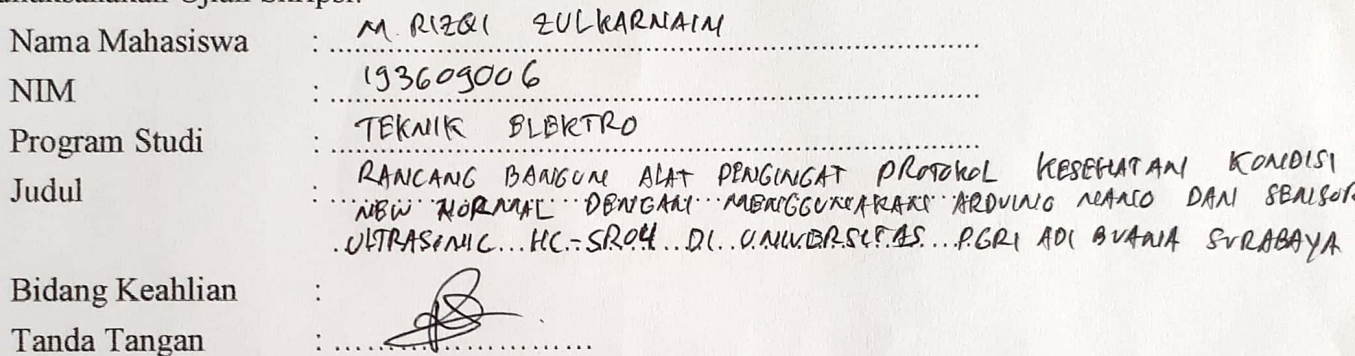 Ujian Skripsi.
Nama Mahasiswa : M. RIZQI ZULKARNAIN
NIM : 193609006
Program Studi : TEKNIK ELEKTRO
Judul : RANCANG BANGUN ALAT PENGINGAT PROTOKOL KESEHATAN KONDISI
NEW NORMAL DENGAN MENGGUNAKAN ARDUINO NANO DAN SENSOR
ULTRASINIC HC-SR04 DI UNIVERSITAS PGRI ADI BUANA SURABAYA
Bidang Keahlian :
Tanda Tangan :